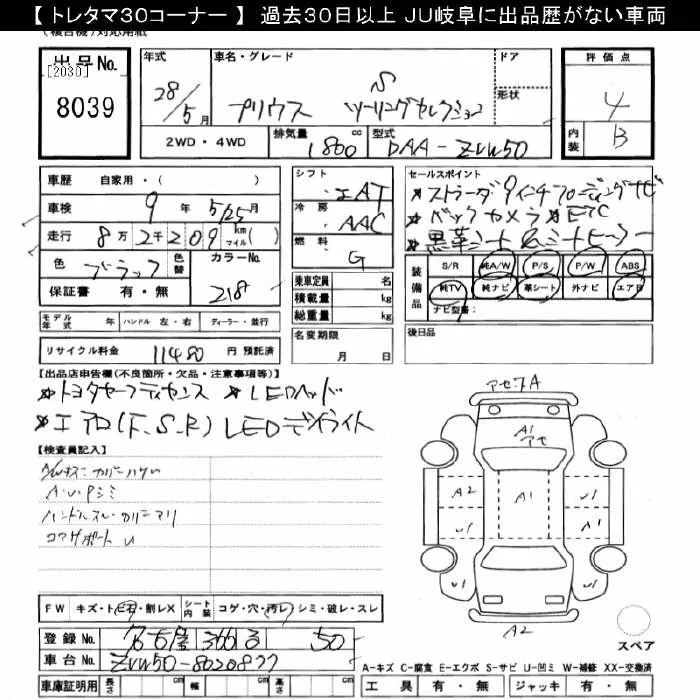 【 トレタマ30コーナー 】 過去30日以上 JU岐阜に出品歴がない車両
(複合機)対応用紙
出品No.
[2030]
8039
年式
28/5月
車名・グレード
S
プリウス ツーリングセレクション
ドア
形状
評価点
4
内装 B
2WD・4WD
排気量 1800 cc
型式 DAA-ZVW50
車歴 自家用・( )
車検 9年 5/25月
走行 8万2千209 km マイル( )
色 ブラック 色替
カラーNo. 218
保証書 有・無
シフト
AT
冷房
AAC
燃料
G
乗車定員 名
積載量 kg
総重量 kg
セールスポイント
バックカメラ ETC
黒革シート
装備品
S/R 純A/W P/S P/W ABS
純TV 純ナビ 革シート 外ナビ エアB
ナビ型番:
モデル年式 年 ハンドル 左・右 ディーラー・並行
リサイクル料金 11480 円 預託済
名変期限
月 日
後日品
【出品店申告欄(不良箇所・欠品・注意事項等)】
トヨタセーフティセンス LEDヘッド
エアロ(F、S、R) LEDデイライト
【検査員記入】
A・U・Pシミ
アセ7A
A1
アセ
A2
A1
U1
A2
U1
U1
A2
スペア
FW キズ・ト ヒ石・割レX シート内装 コゲ・穴・汚レ シミ・破レ・スレ
登録No. 名古屋 50
車台No. ZVW50-8020877
車庫証明用 長さ cm 幅 cm 高さ cm
A-キズ C-腐食 E-エクボ S-サビ U-凹ミ W-補修 XX-交換済
工具 有・無 ジャッキ 有・無